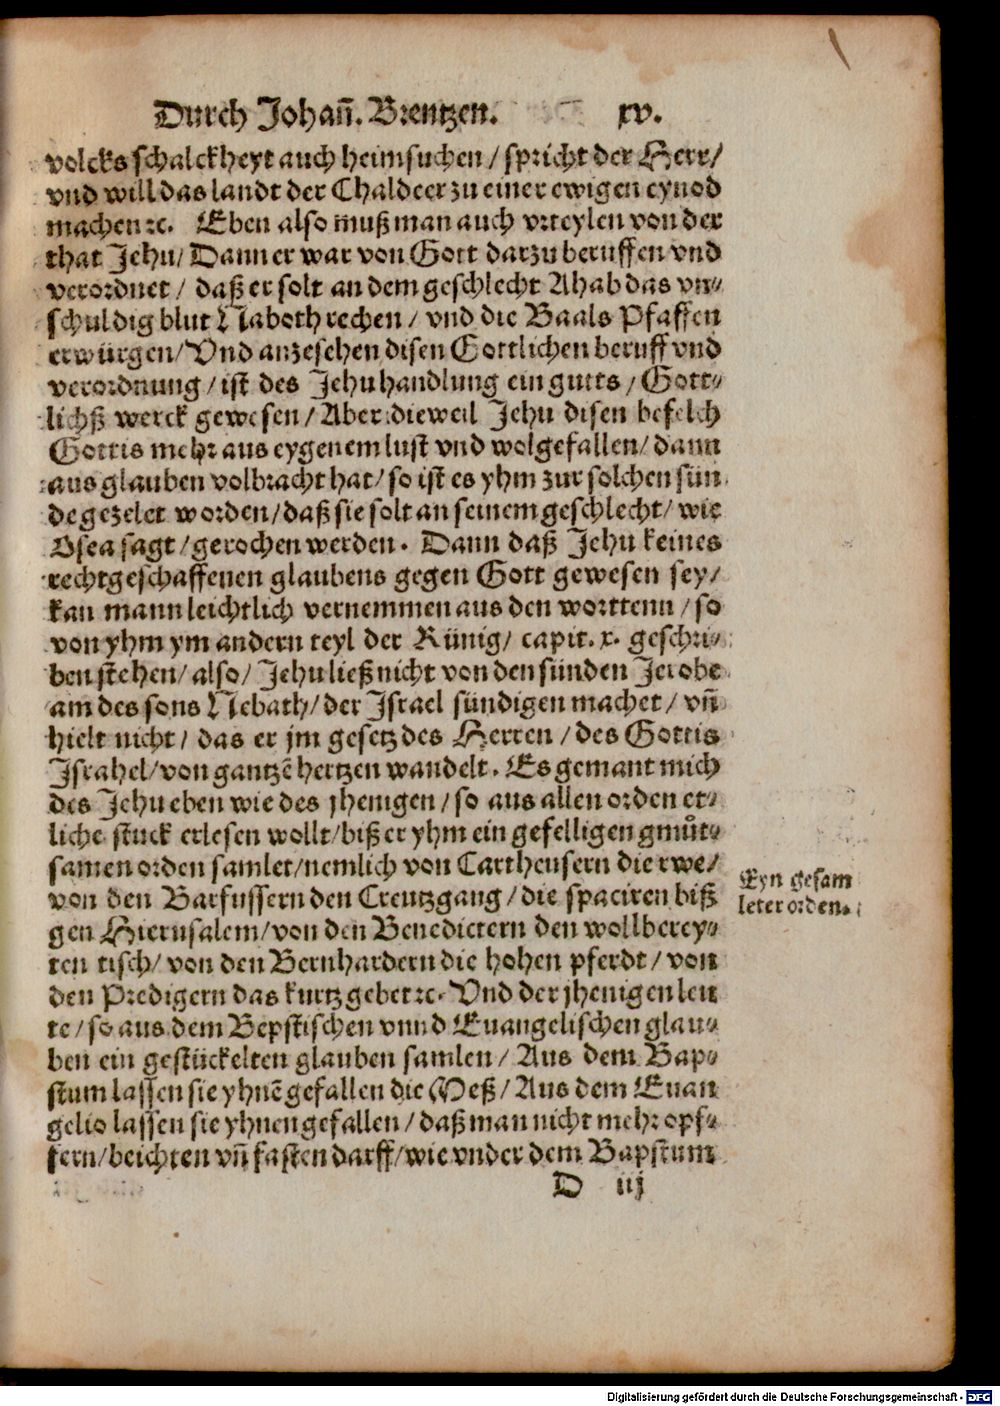 Durch Johañ. Brentzen. xv.
volcks schalckheyt auch heimsuchen / spricht der Herr /
vnd will das landt der Chaldeer zu einer ewigen eynod
machen ꝛc. Eben also muß man auch vrteylen von der
that Jehu / Dann er war von Gott darzu beruffen vnd
verordnet / daß er solt an dem geschlecht Ahab das vn⸗
schuldig blut Naboth rechen / vnd die Baals Pfaffen
erwürgen / Vnd anzesehen disen Gottlichen beruff vnd
verordnung / ist des Jehu handlung ein guts / Gott⸗
lichß werck gewesen / Aber dieweil Jehu disen befelch
Gottis mehr aus eygenem lust vnd wolgefallen / dann
aus glauben volbracht hat / so ist es yhm zur solchen sün
de gezelet worden / daß sie solt an seinem geschlecht / wie
Osea sagt / gerochen werden. Dann daß Jehu keines
rechtgeschaffenen glaubens gegen Gott gewesen sey /
kan mann leichtlich vernemmen aus den worttenn / so
von yhm ym andern teyl der Künig / capit. x. geschri⸗
ben stehen / also / Jehu ließ nicht von den sünden Jerobe
am des sons Nebath / der Israel sündigen machet / vñ
hielt nicht / das er jm gesetz des Herren / des Gottis
Israhel / von gantzē hertzen wandelt. Es gemant mich
des Jehu eben wie des jhenigen / so aus allen orden et⸗
liche stuck erlesen wollt / biß er yhm ein gefelligen gmůt⸗
samen orden samlet / nemlich von Cartheusern die rwe /
von den Barfussern den Creutzgang / die spaciren biß
gen Hierusalem / von den Benedictern den wollberey⸗
ten tisch / von den Bernhardern die hohen pferdt / von
den Predigern das kurtz gebet ꝛc. Vnd der jhenigen leu
te / so aus dem Bepstischen vnnd Euangelischen glau⸗
ben ein gestückelten glauben samlen / Aus dem Bap⸗
stum lassen sie yhnē gefallen die Meß / Aus dem Euan
gelio lassen sie yhnen gefallen / daß man nicht mehr opf⸗
fern / beichten vñ fasten darff / wie vnder dem Bapstum
Eyn gesam
leter orden.
D iij
Digitalisierung gefördert durch die Deutsche Forschungsgemeinschaft - DFG